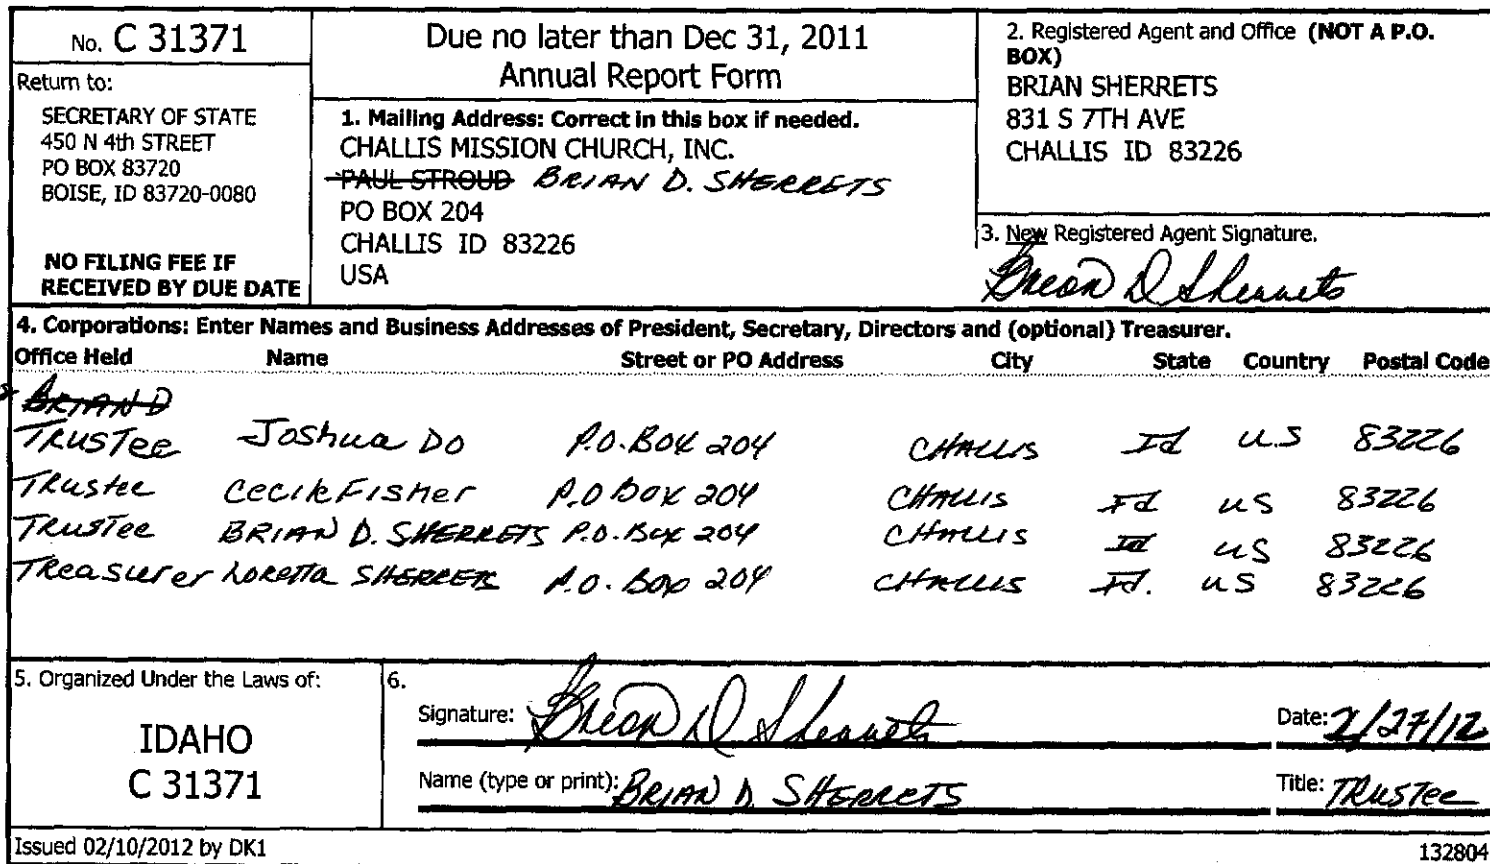 No. C 31371
Return to:
SECRETARY OF STATE
450 N 4th STREET
PO BOX 83720
BOISE, ID 83720-0080
NO FILING FEE IF
RECEIVED BY DUE DATE
Due no later than Dec 31, 2011
Annual Report Form
1. Mailing Address: Correct in this box if needed.
CHALLIS MISSION CHURCH, INC.
PAUL STROUD BRIAN D. SHERRETS
PO BOX 204
CHALLIS ID 83226
USA
2. Registered Agent and Office (NOT A P.O.
BOX)
BRIAN SHERRETS
831 S 7TH AVE
CHALLIS ID 83226
3. New Registered Agent Signature.
Brian D Sherrets
4. Corporations: Enter Names and Business Addresses of President, Secretary, Directors and (optional) Treasurer.
Office Held Name Street or PO Address City State Country Postal Code
BRIAN D
TRUSTee Joshua Do P.O. Box 204 CHALLIS Id U.S 83226
TRustee Cecil Fisher P.O Box 204 CHALLIS Id US 83226
TRUSTee BRIAN D. SHERRETS P.O. Box 204 CHALLIS Id US 83226
TReasurer Loretta SHERRETS P.O. Box 204 CHALLIS Id. US 83226
5. Organized Under the Laws of:
IDAHO
C 31371
6.
Signature: Brian D Sherrets Date: 2/27/12
Name (type or print): BRIAN D SHERRETS Title: TRUSTee
Issued 02/10/2012 by DK1
132804